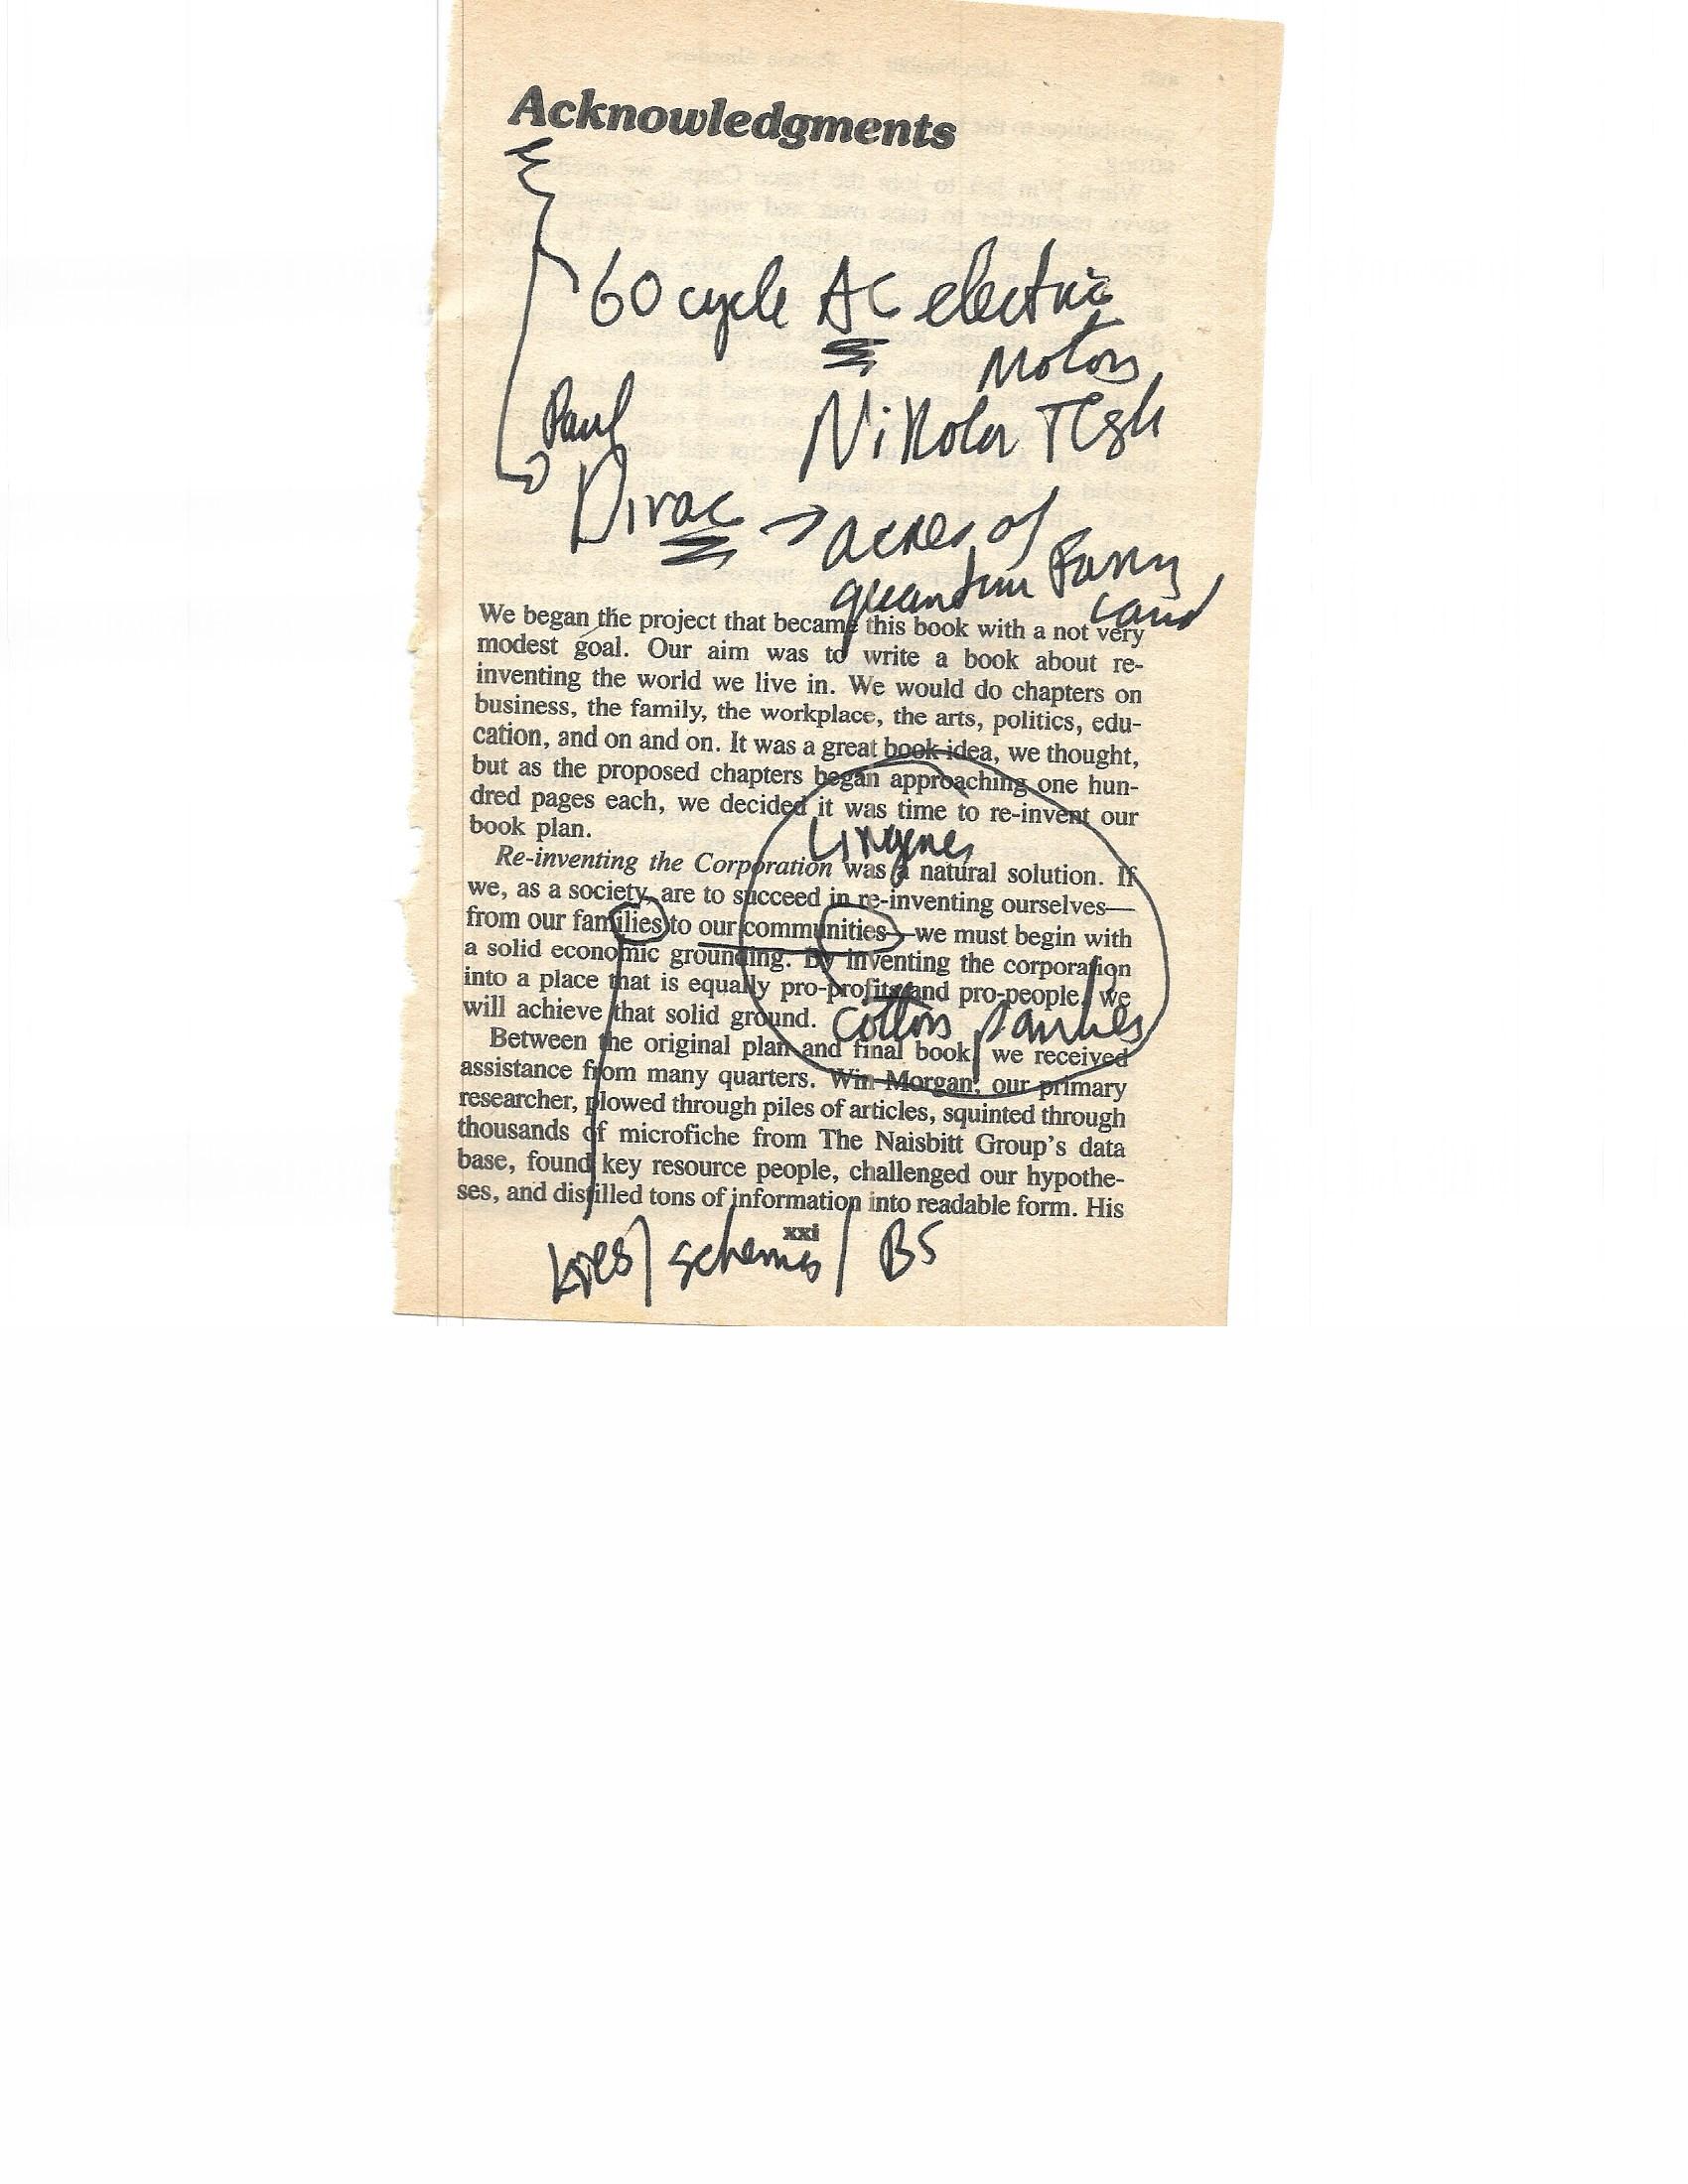 Acknowledgments
60 cycle AC electric
Motors
Paul
Nikola Tesla
Dirac → acres of
quantum Farm
Land
We began the project that became this book with a not very
modest goal. Our aim was to write a book about re-
inventing the world we live in. We would do chapters on
business, the family, the workplace, the arts, politics, edu-
cation, and on and on. It was a great book idea, we thought,
but as the proposed chapters began approaching one hun-
dred pages each, we decided it was time to re-invent our
book plan.
Re-inventing the Corporation was a natural solution. If
we, as a society, are to succeed in re-inventing ourselves—
from our families to our communities—we must begin with
a solid economic grounding. By inventing the corporation
into a place that is equally pro-profits and pro-people, we
will achieve that solid ground.
cotton panties
Between the original plan and final book, we received
assistance from many quarters. Win Morgan, our primary
researcher, plowed through piles of articles, squinted through
thousands of microfiche from The Naisbitt Group's data
base, found key resource people, challenged our hypothe-
ses, and distilled tons of information into readable form. His
xxi
Lies / schemes / BS